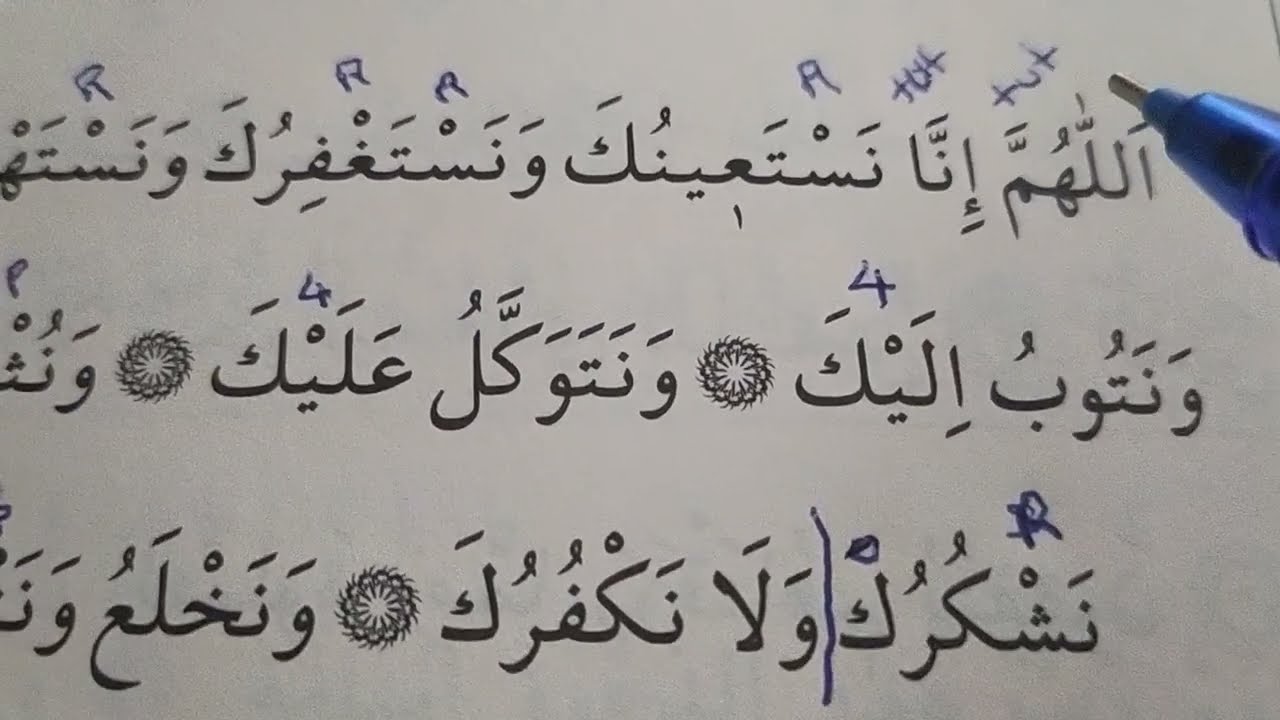 اَللّٰهُمَّ إِنَّا نَسْتَعِينُكَ وَنَسْتَغْفِرُكَ
وَنَتُوبُ اِلَيْكَ وَنَتَوَكَّلُ عَلَيْكَ
نَشْكُرُكَ وَلَا نَكْفُرُكَ وَنَخْلَعُ